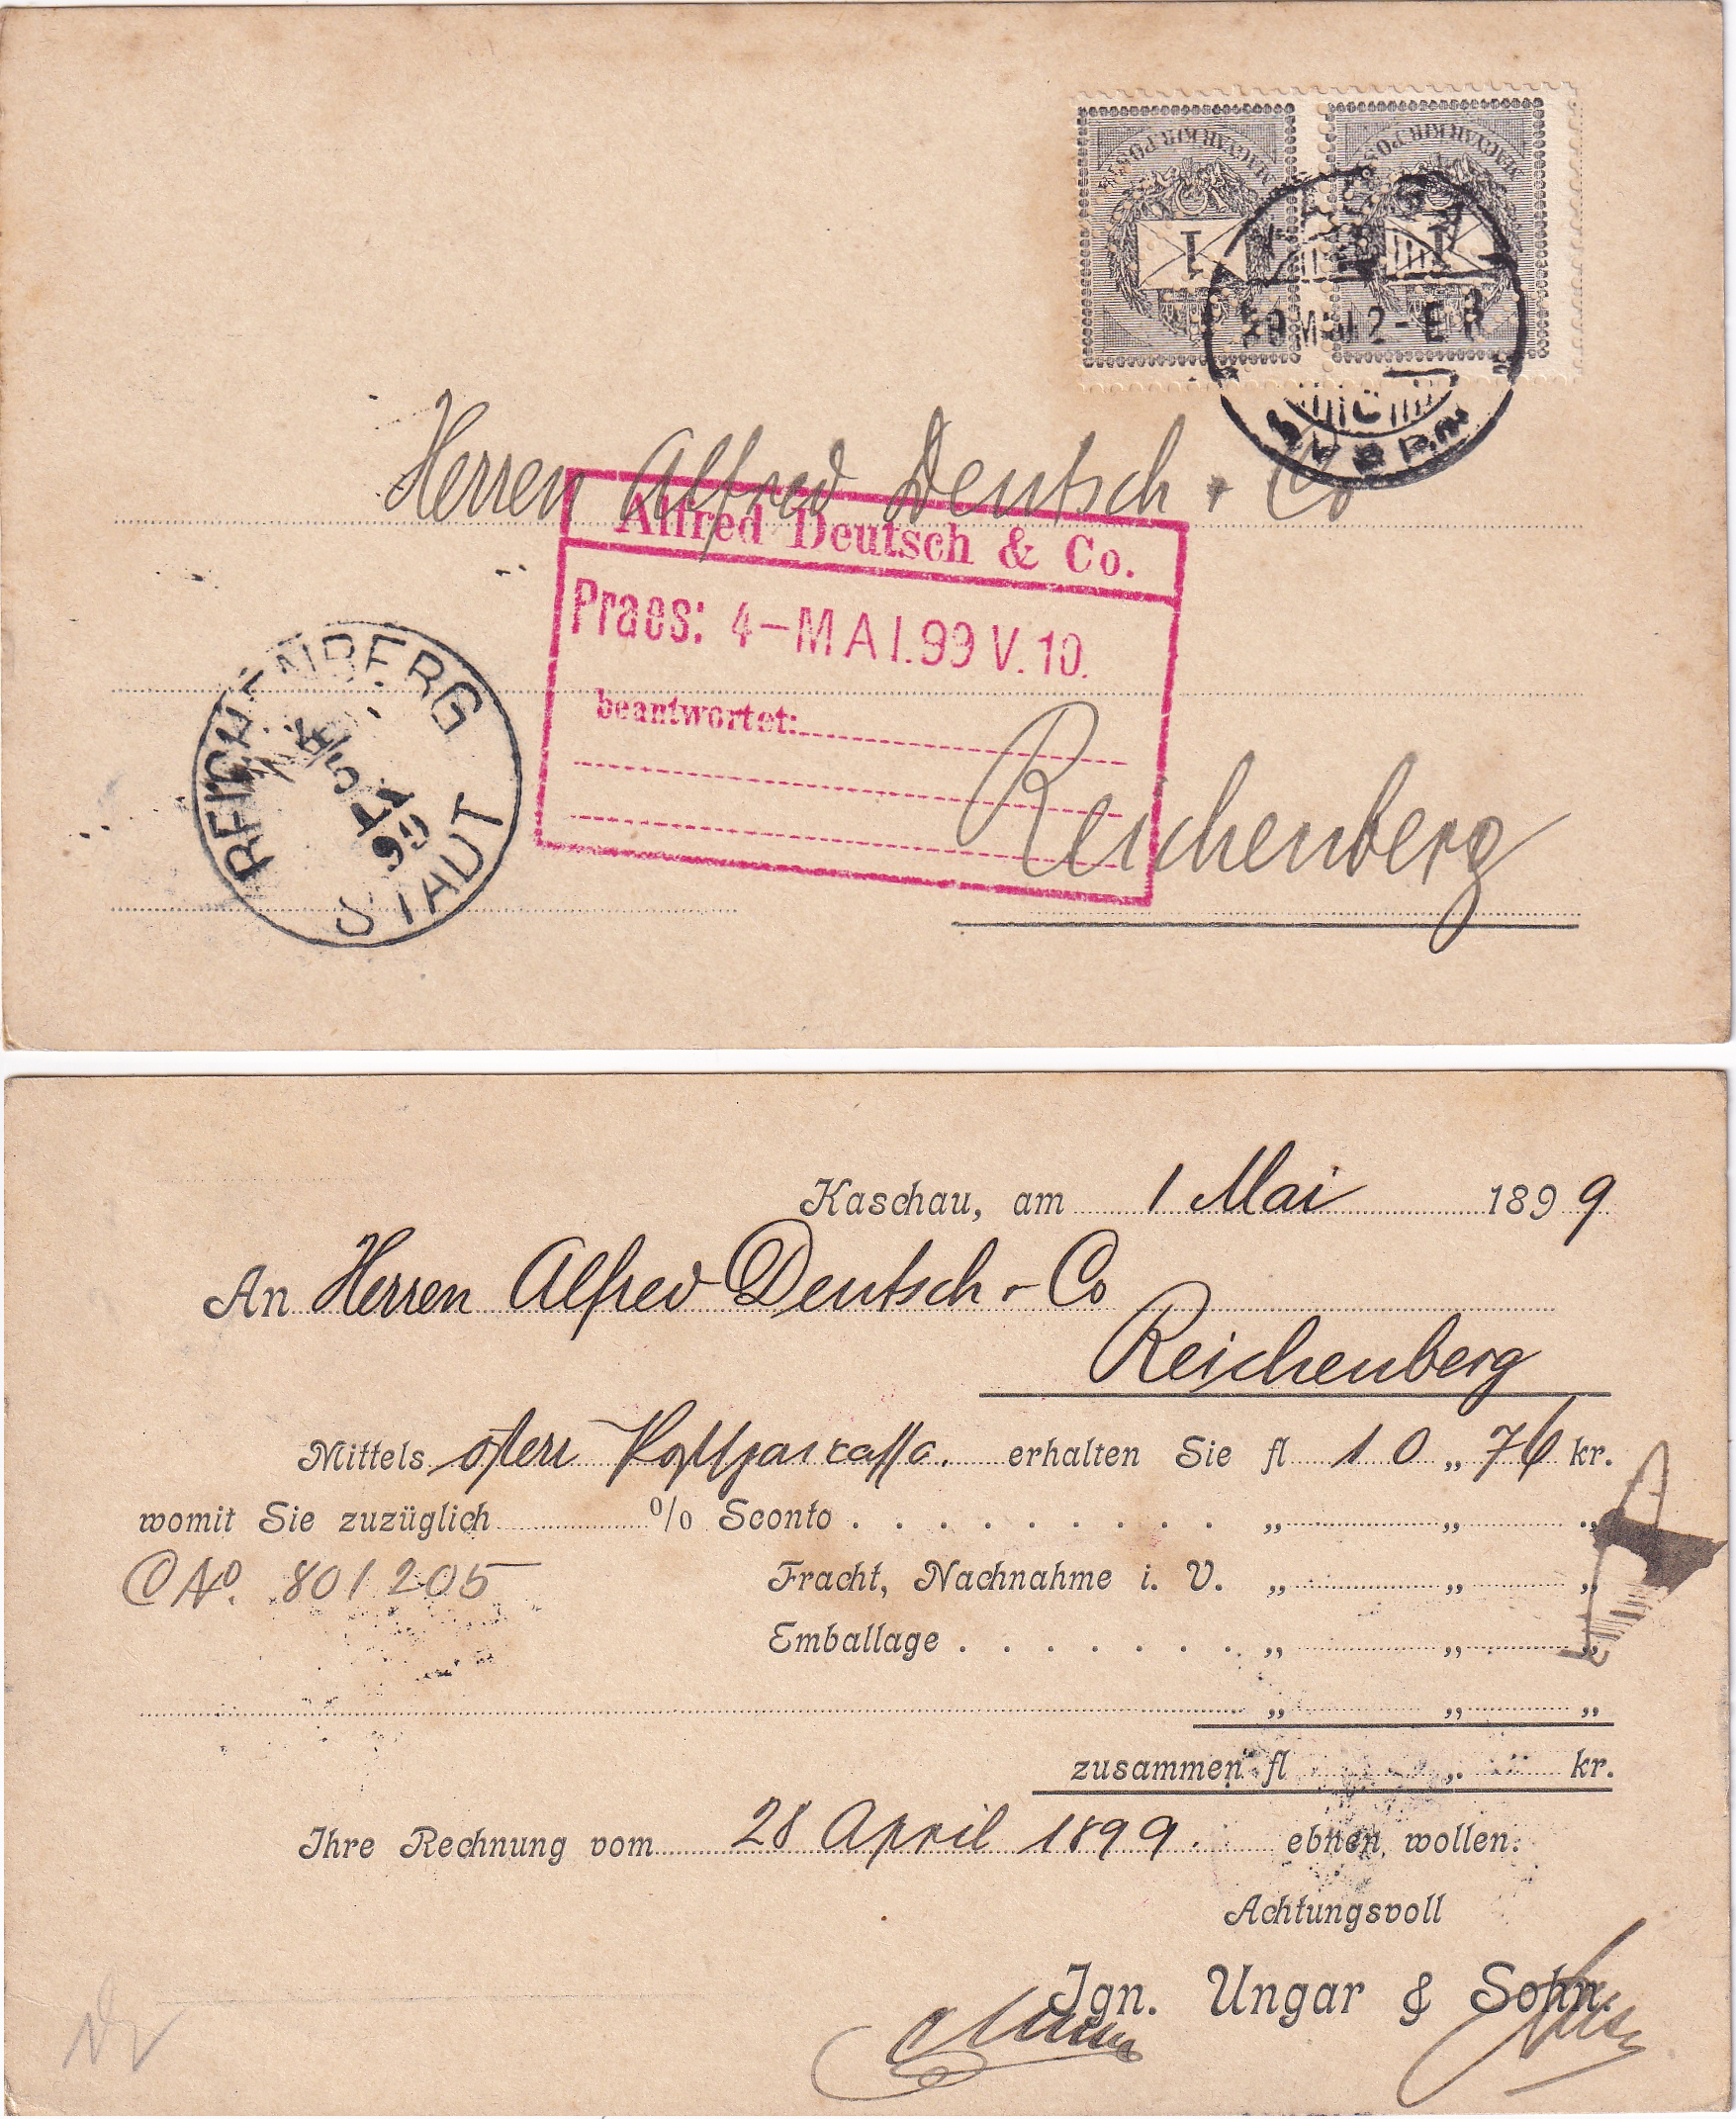 MAGYAR KIR. POSTA MAGYAR KIR. POSTA
1 1
Herren Alfred Deutsch & Co
Alfred Deutsch & Co.
Praes: 4-MAI.99 V.10.
beantwortet:
REICHENBERG
4/5
99
STADT
Reichenberg
Kaschau, am 1 Mai 1899
An Herren Alfred Deutsch & Co
Reichenberg
Mittels österr Postsparcassa. erhalten Sie fl 10 „ 76 kr.
womit Sie zuzüglich % Sconto . . . . . . . . . „ „ „
CNo. 801205 Fracht, Nachnahme i. V. „ „ „
Emballage . . . . . . . „ „ „
„ „ „
zusammen fl „ kr.
Ihre Rechnung vom 28 April 1899. ebnen wollen.
Achtungsvoll
Ign. Ungar & Sohn.